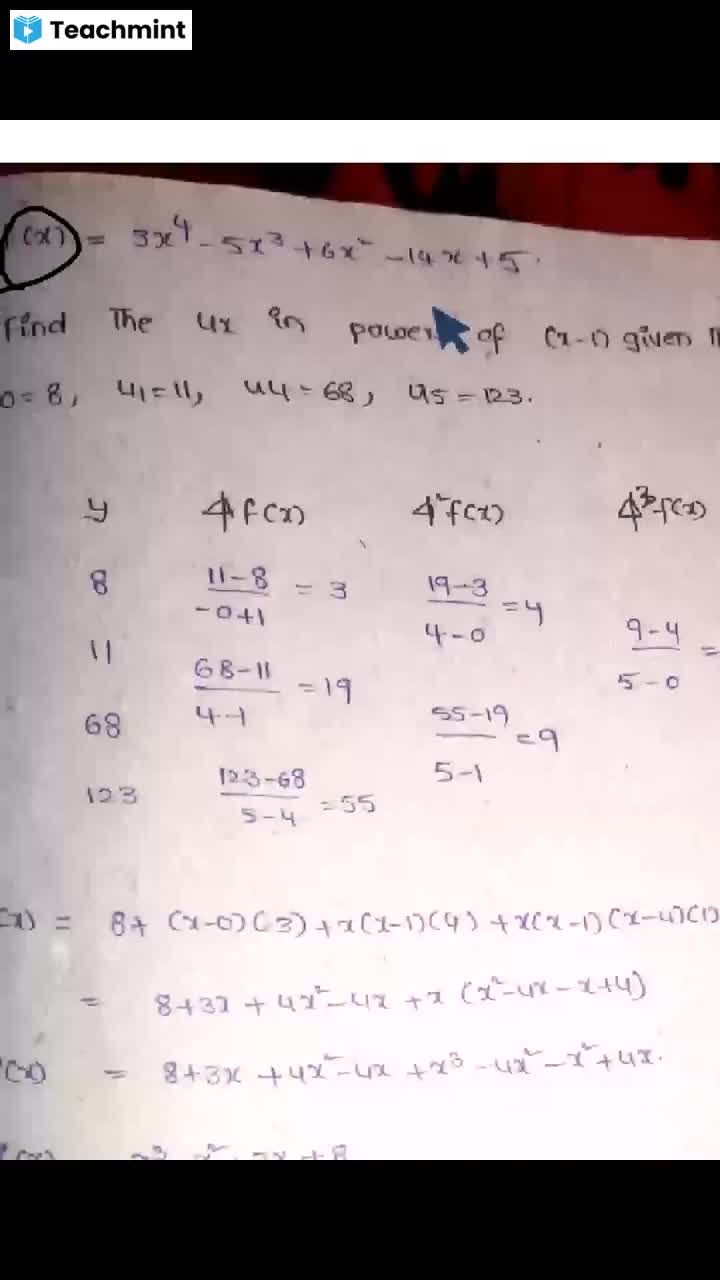 Teachmint
(x) = 3x⁴ - 5x³ + 6x² - 14x + 5.
Find The ux in power of (x-1) given
0 = 8, u1 = 11, u4 = 68, u5 = 123.
y ⍋f(x) ⍋²f(x) ⍋³f(x)
8 11-8/-0+1 = 3 19-3/4-0 = 4
11 68-11/4-1 = 19 9-4/5-0 =
68 55-19/5-1 = 9
123 123-68/5-4 = 55
(x) = 8+ (x-0)(3) + x(x-1)(4) + x(x-1)(x-4)(1)
= 8+3x + 4x²-4x + x (x²-4x-x+4)
(x) = 8+3x + 4x²-4x + x³ - 4x² - x² + 4x.